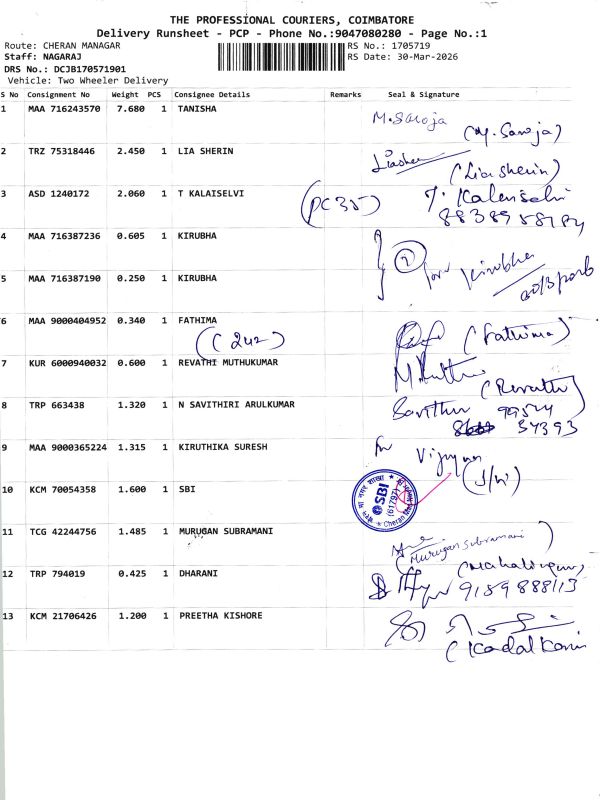 THE PROFESSIONAL COURIERS, COIMBATORE
Delivery Runsheet - PCP - Phone No.:9047080280 - Page No.:1
Route: CHERAN MANAGAR
RS No.: 1705719
Staff: NAGARAJ
RS Date: 30-Mar-2026
DRS No.: DCJB170571901
Vehicle: Two Wheeler Delivery
S No Consignment No Weight PCS Consignee Details Remarks Seal & Signature
1 MAA 716243570 7.680 1 TANISHA M.Saroja
(M. Saroja)
2 TRZ 75318446 2.450 1 LIA SHERIN
(Lia sherin)
3 ASD 1240172 2.060 1 T KALAISELVI (PC35) T. Kalaiselvi
4 MAA 716387236 0.605 1 KIRUBHA
2 Kirubha
5 MAA 716387190 0.250 1 KIRUBHA
6 MAA 9000404952 0.340 1 FATHIMA (Fathima)
(242)
7 KUR 6000940032 0.600 1 REVATHI MUTHUKUMAR
(Revathi)
8 TRP 663438 1.320 1 N SAVITHIRI ARULKUMAR Savithiri 99524
34393
9 MAA 9000365224 1.315 1 KIRUTHIKA SURESH for
10 KCM 70054358 1.600 1 SBI
SBI
(61797)
11 TCG 42244756 1.485 1 MURUGAN SUBRAMANI
(Murugan subramani)
12 TRP 794019 0.425 1 DHARANI
9189888113
13 KCM 21706426 1.200 1 PREETHA KISHORE
(Kadalkani